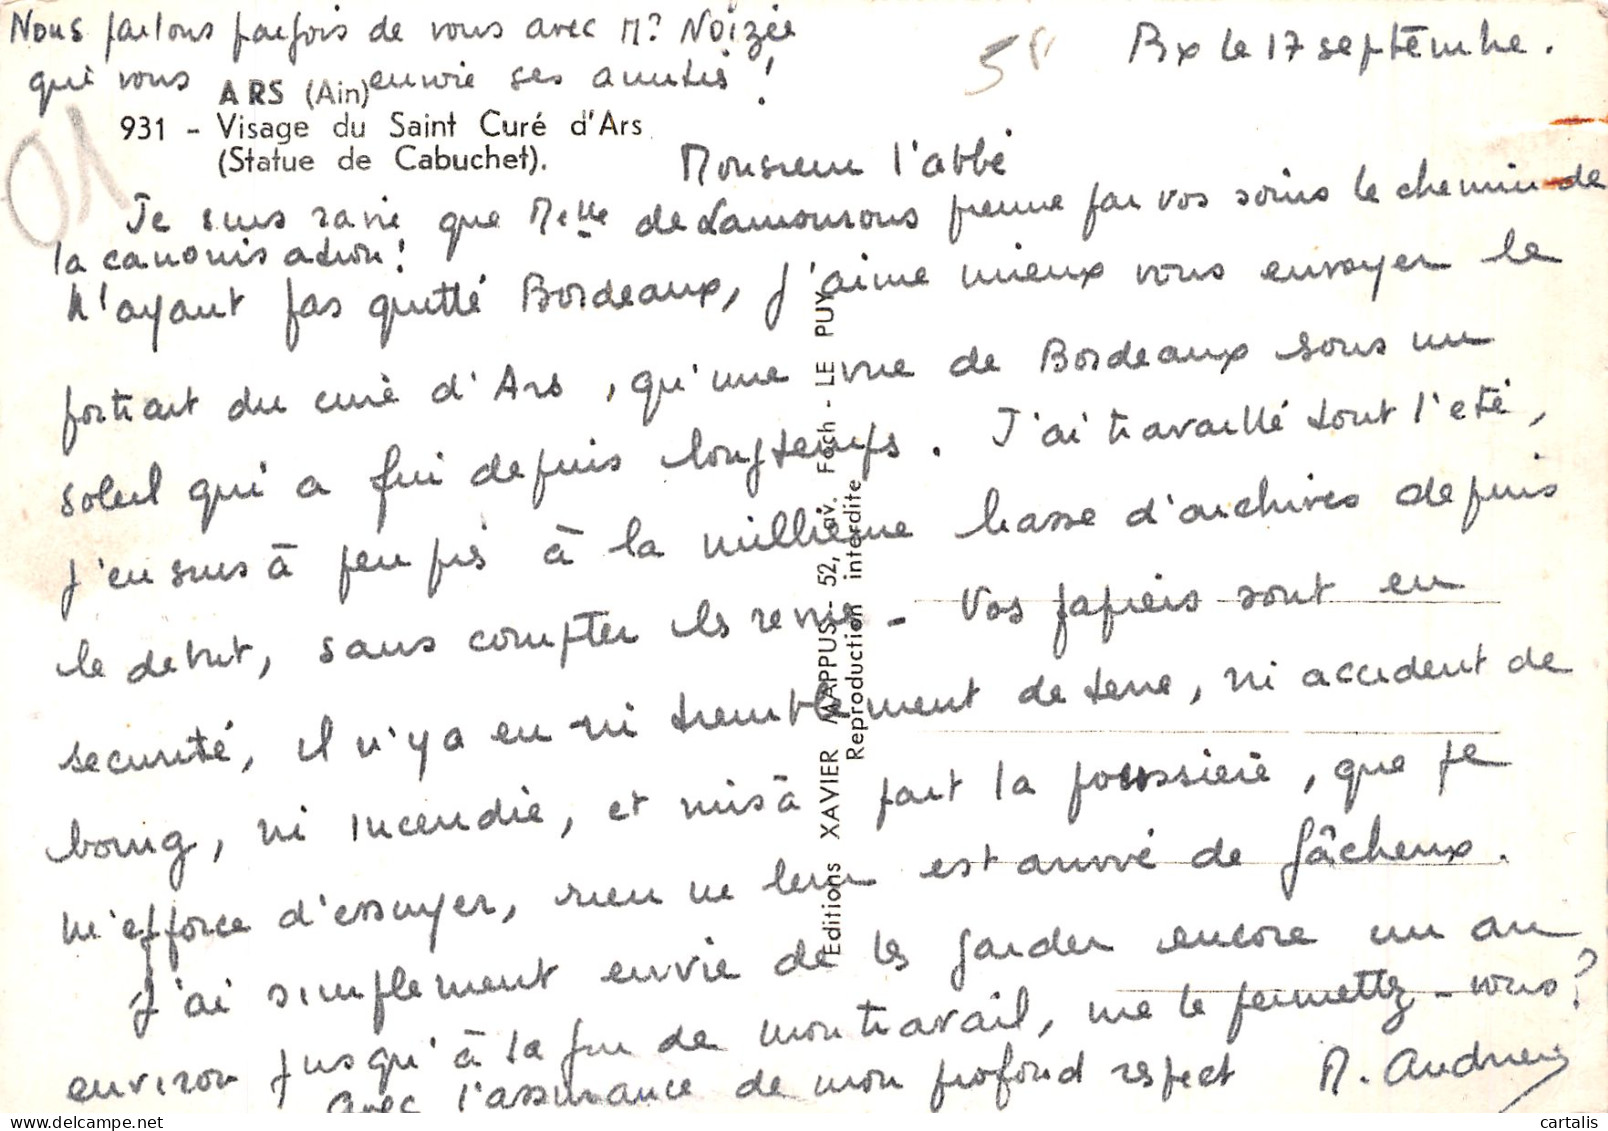 Nous parlons parfois de vous avec Mr Noizée
qui vous envoie ses amitiés !
Bx le 17 septembre.
ARS (Ain)
931 - Visage du Saint Curé d'Ars
(Statue de Cabuchet).
01
Monsieur l'abbé
Je suis ravie que Melle de Lamourous prenne par vos soins le chemin de
la canonisation !
N'ayant pas quitté Bordeaux, j'aime mieux vous envoyer le
portrait du curé d'Ars, qu'une vue de Bordeaux sous un
soleil qui a fui depuis longtemps. J'ai travaillé tout l'été,
j'en suis à peu près à la millième liasse d'archives depuis
le début, sans compter les revues - Vos papiers sont en
securité, il n'y a eu ni tremblement de terre, ni accident de
boing, ni incendie, et mis à part la poussière, que je
m'efforce d'essuyer, rien ne leur est arrivé de fâcheux.
J'ai simplement envie de les garder encore un an
environ jusqu'à la fin de mon travail, me le permettez-vous ?
Avec l'assurance de mon profond respect M.
Editions XAVIER MAPPUS - 52, av. Foch - LE PUY
Reproduction interdite
cartalis